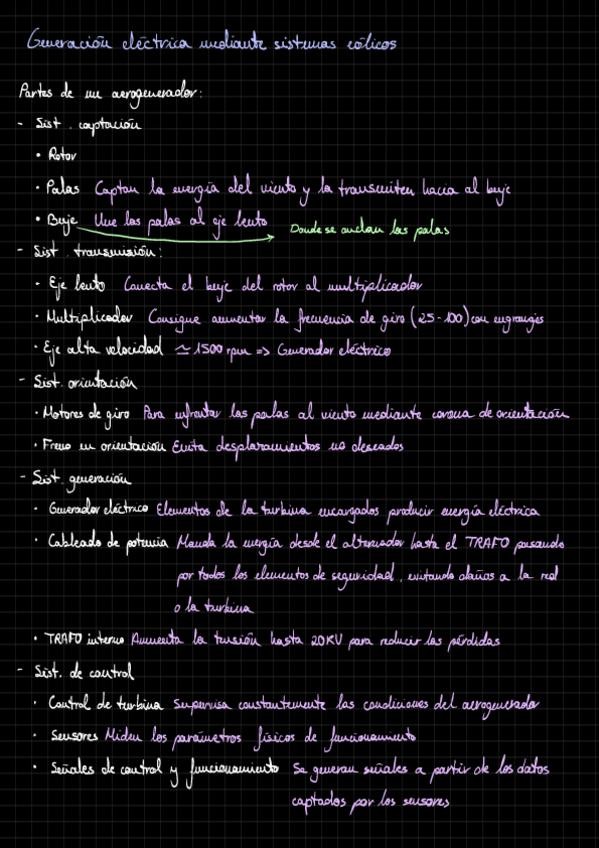 Generación eléctrica mediante sistemas eólicos
Partes de un aerogenerador:
- Sist. captación
• Rotor
• Palas Captan la energía del viento y la transmiten hacia al buje
• Buje Une las palas al eje lento Donde se anclan las palas
- Sist. transmisión:
• Eje lento Conecta el buje del rotor al multiplicador
• Multiplicador Consigue aumentar la frecuencia de giro (25-100) con engranajes
• Eje alta velocidad ≃ 1500 rpm => Generador eléctrico
- Sist. orientación
• Motores de giro Para enfrentar las palas al viento mediante corona de orientación
• Freno en orientación Evita desplazamientos no deseados
- Sist. generación
• Generador eléctrico Elementos de la turbina encargados producir energía eléctrica
• Cableado de potencia Manda la energía desde el alternador hasta el TRAFO pasando
por todos los elementos de seguridad, evitando daños a la red
o la turbina
• TRAFO interno Aumenta la tensión hasta 20KV para reducir las pérdidas
- Sist. de control
• Control de turbina Supervisa constantemente las condiciones del aerogenerador
• Sensores Miden los parámetros físicos de funcionamiento
• Señales de control y funcionamiento Se generan señales a partir de los datos
captados por los sensores